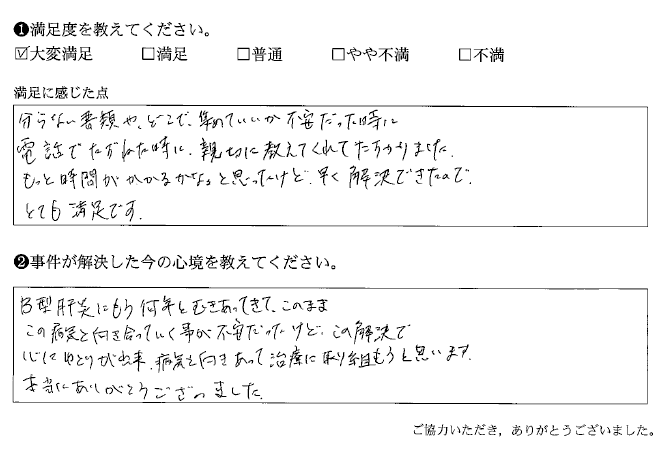 ❶満足度を教えてください。
☑大変満足 □満足 □普通 □やや不満 □不満
満足に感じた点
分らない書類や、どこで、集めていいか不安だった時に
電話でたずねた時に、親切に教えてくれてたすかりました。
もっと時間がかかるかなぁと思ったけど、早く解決できたので、
とても満足です。
❷事件が解決した今の心境を教えてください。
B型肝炎にもう何年とむきあってきて、このまま
この病気と向き合っていく事が不安だったけど、この解決で
心にゆとりが出来、病気と向きあって治療に取り組もうと思います。
本当にありがとうございました。
ご協力いただき，ありがとうございました。